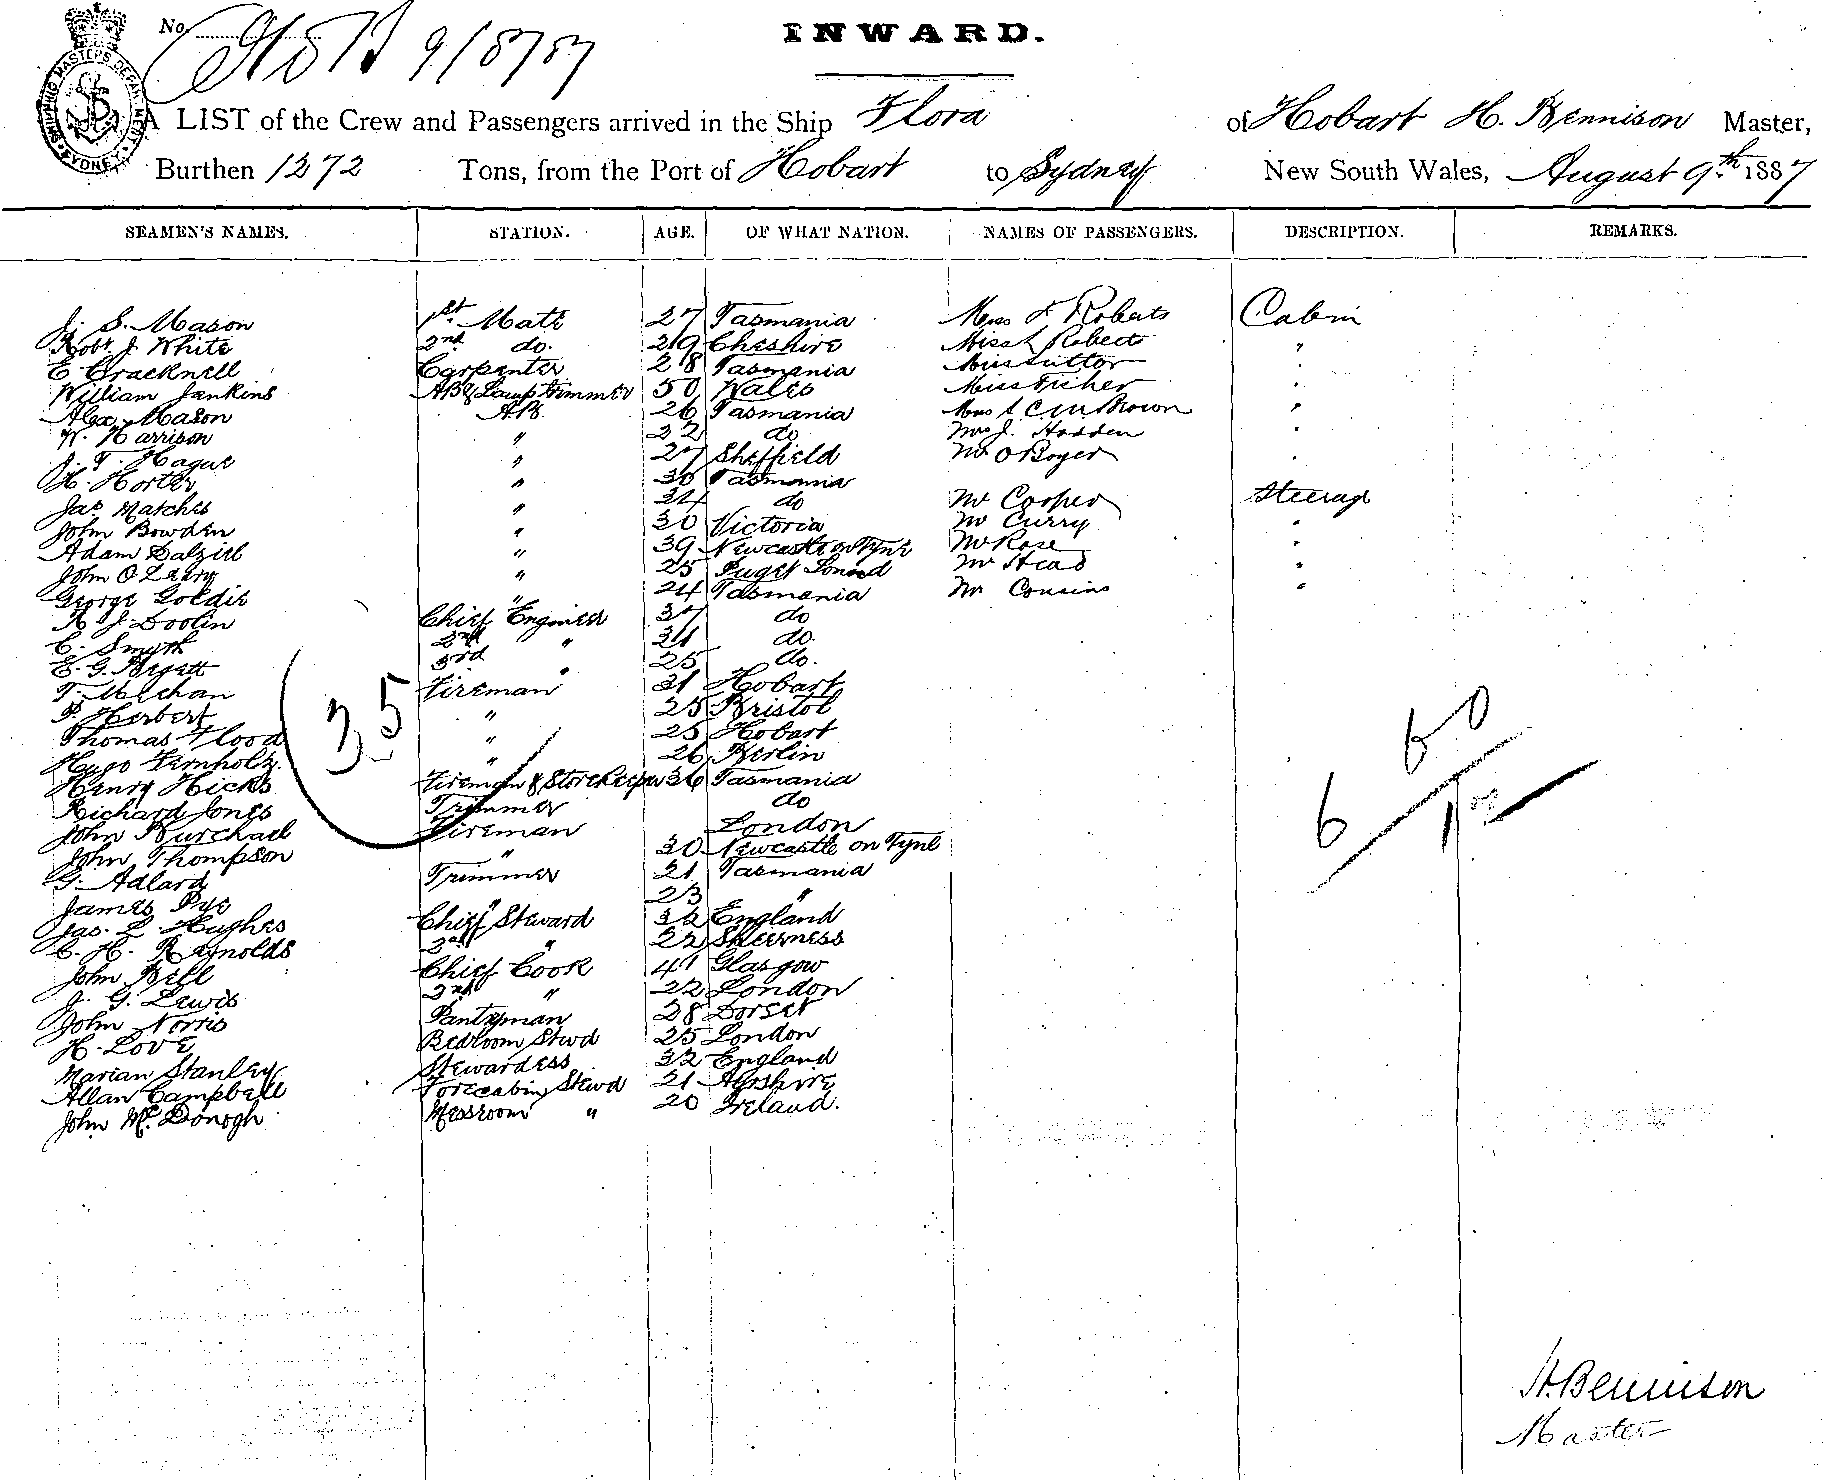 No.
9/8/87
INWARD.
A LIST of the Crew and Passengers arrived in the Ship Flora of Hobart H. Bennison Master,
Burthen 1272 Tons, from the Port of Hobart to Sydney New South Wales, August 9th 1887
SEAMEN'S NAMES. STATION. AGE. OF WHAT NATION. NAMES OF PASSENGERS. DESCRIPTION. REMARKS.
J. S. Mason 1st Mate 27 Tasmania F Roberts Cabin
Robt J. White 2nd do. 29 Cheshire Miss Roberts "
E Cracknell Carpenter 28 Tasmania Miss "
William Jankins AB & Lamp trimmer 50 Wales Miss Fisher "
Alex. Mason AB. 26 Tasmania Brown "
W. Harrison " 22 do Mrs J. Hadden "
J. T. Hague " 27 Sheffield Mr O Boyer "
H. Horter " 30 Tasmania
Jas. Matches " 24 do Mr Cooper Steerage
John Bowden " 30 Victoria Mr Curry "
Adam Dalziel " 39 Newcastle on Tyne Mr Rose "
John O Leary " 25 Puget Sound Mr Head "
George Goldie " 24 Tasmania Mr Cousins "
R. J. Doolin Chief Engineer 37 do
C. Smyth 2nd " 24 do.
E. G. 3rd " 25 do.
T. Mechan Fireman 31 Hobart
P. Herbert " 25 Bristol
Thomas Flood " 25 Hobart
Hugo " 26 Berlin
Henry Hicks Fireman & Storekeeper 36 Tasmania
Richard Jones Trimmer do
John Burchael Fireman London
John Thompson " 30 Newcastle on Tyne
G. Adlard Trimmer 21 Tasmania
James Pye " 23 "
Jas. L Hughes Chief Steward 32 England
C. H. Reynolds 2nd " 22 Sheerness
John Bell Chief Cook 41 Glasgow
J. G. Lewis 2nd " 22 London
John Norris Pantryman 28 Dorset
H. Love Bedroom Stwd 25 London
Marian Stanley Stewardess 32 England
Allan Campbell Forecabin Stewd 21 Ayrshire
John McDonogh Messroom " 20 Ireland.
35
6
H. Bennison
Master